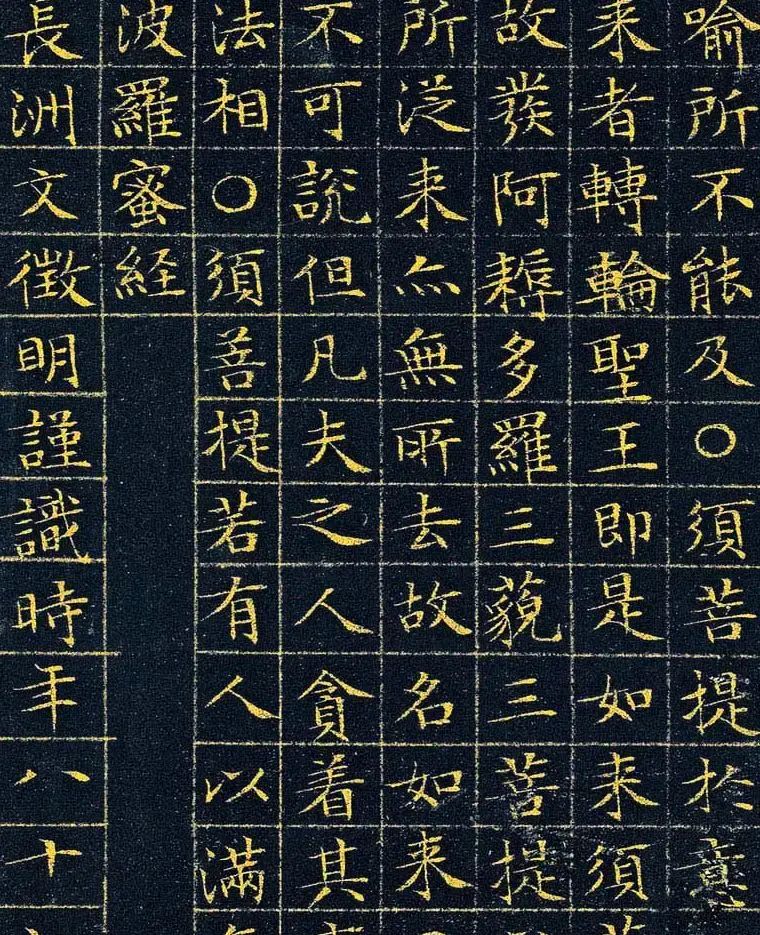 喻所不能及○須菩提於意
来者轉輪聖王即是如来須
故發阿耨多羅三藐三菩提
所從来亦無所去故名如来
不可說但凡夫之人貪着其
法相○須菩提若有人以滿
波羅蜜経
長洲文徵明謹識時年八十